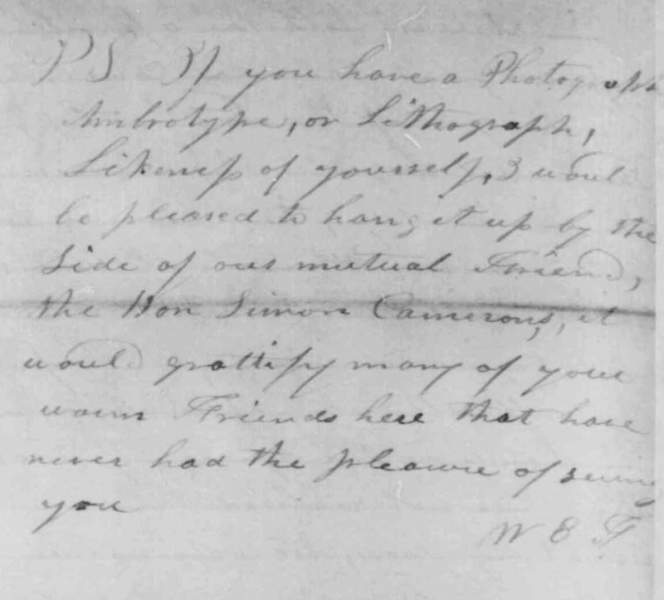 PS If you have a Photograph
Ambrotype, or Lithograph,
Likeness of yourself, I would
be pleased to hang it up by the
side of our mutual Friend,
the Hon Simon Camerons, it
would grattify many of your
warm Friends here that have
never had the pleasure of seeing
you
W E F